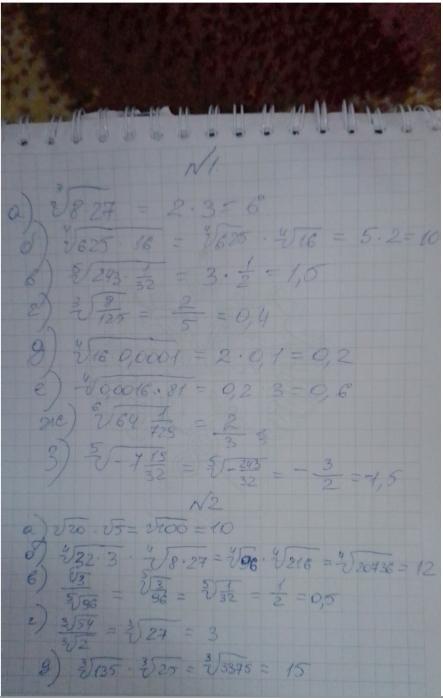 №1
а) ∛(8·27) = 2·3 = 6
б) ∜(625·16) = ∜625 · ∜16 = 5·2 = 10
в) ⁵√(243·1/32) = 3·1/2 = 1,5
г) ∛(8/125) = 2/5 = 0,4
д) ∜(16·0,0001) = 2·0,1 = 0,2
е) ∜(0,0016·81) = 0,2·3 = 0,6
ж) ⁶√(64·1/729) = 2/3
з) ⁵√(-7 19/32) = ⁵√(-243/32) = -3/2 = -1,5
№2
а) √20 · √5 = √100 = 10
б) ∜(32·3) · ∜(8·27) = ∜96 · ∜216 = ∜20736 = 12
в) ⁵√3/⁵√96 = ⁵√(3/96) = ⁵√(1/32) = 1/2 = 0,5
г) ∛54/∛2 = ∛27 = 3
д) ∛135 · ∛25 = ∛3375 = 15